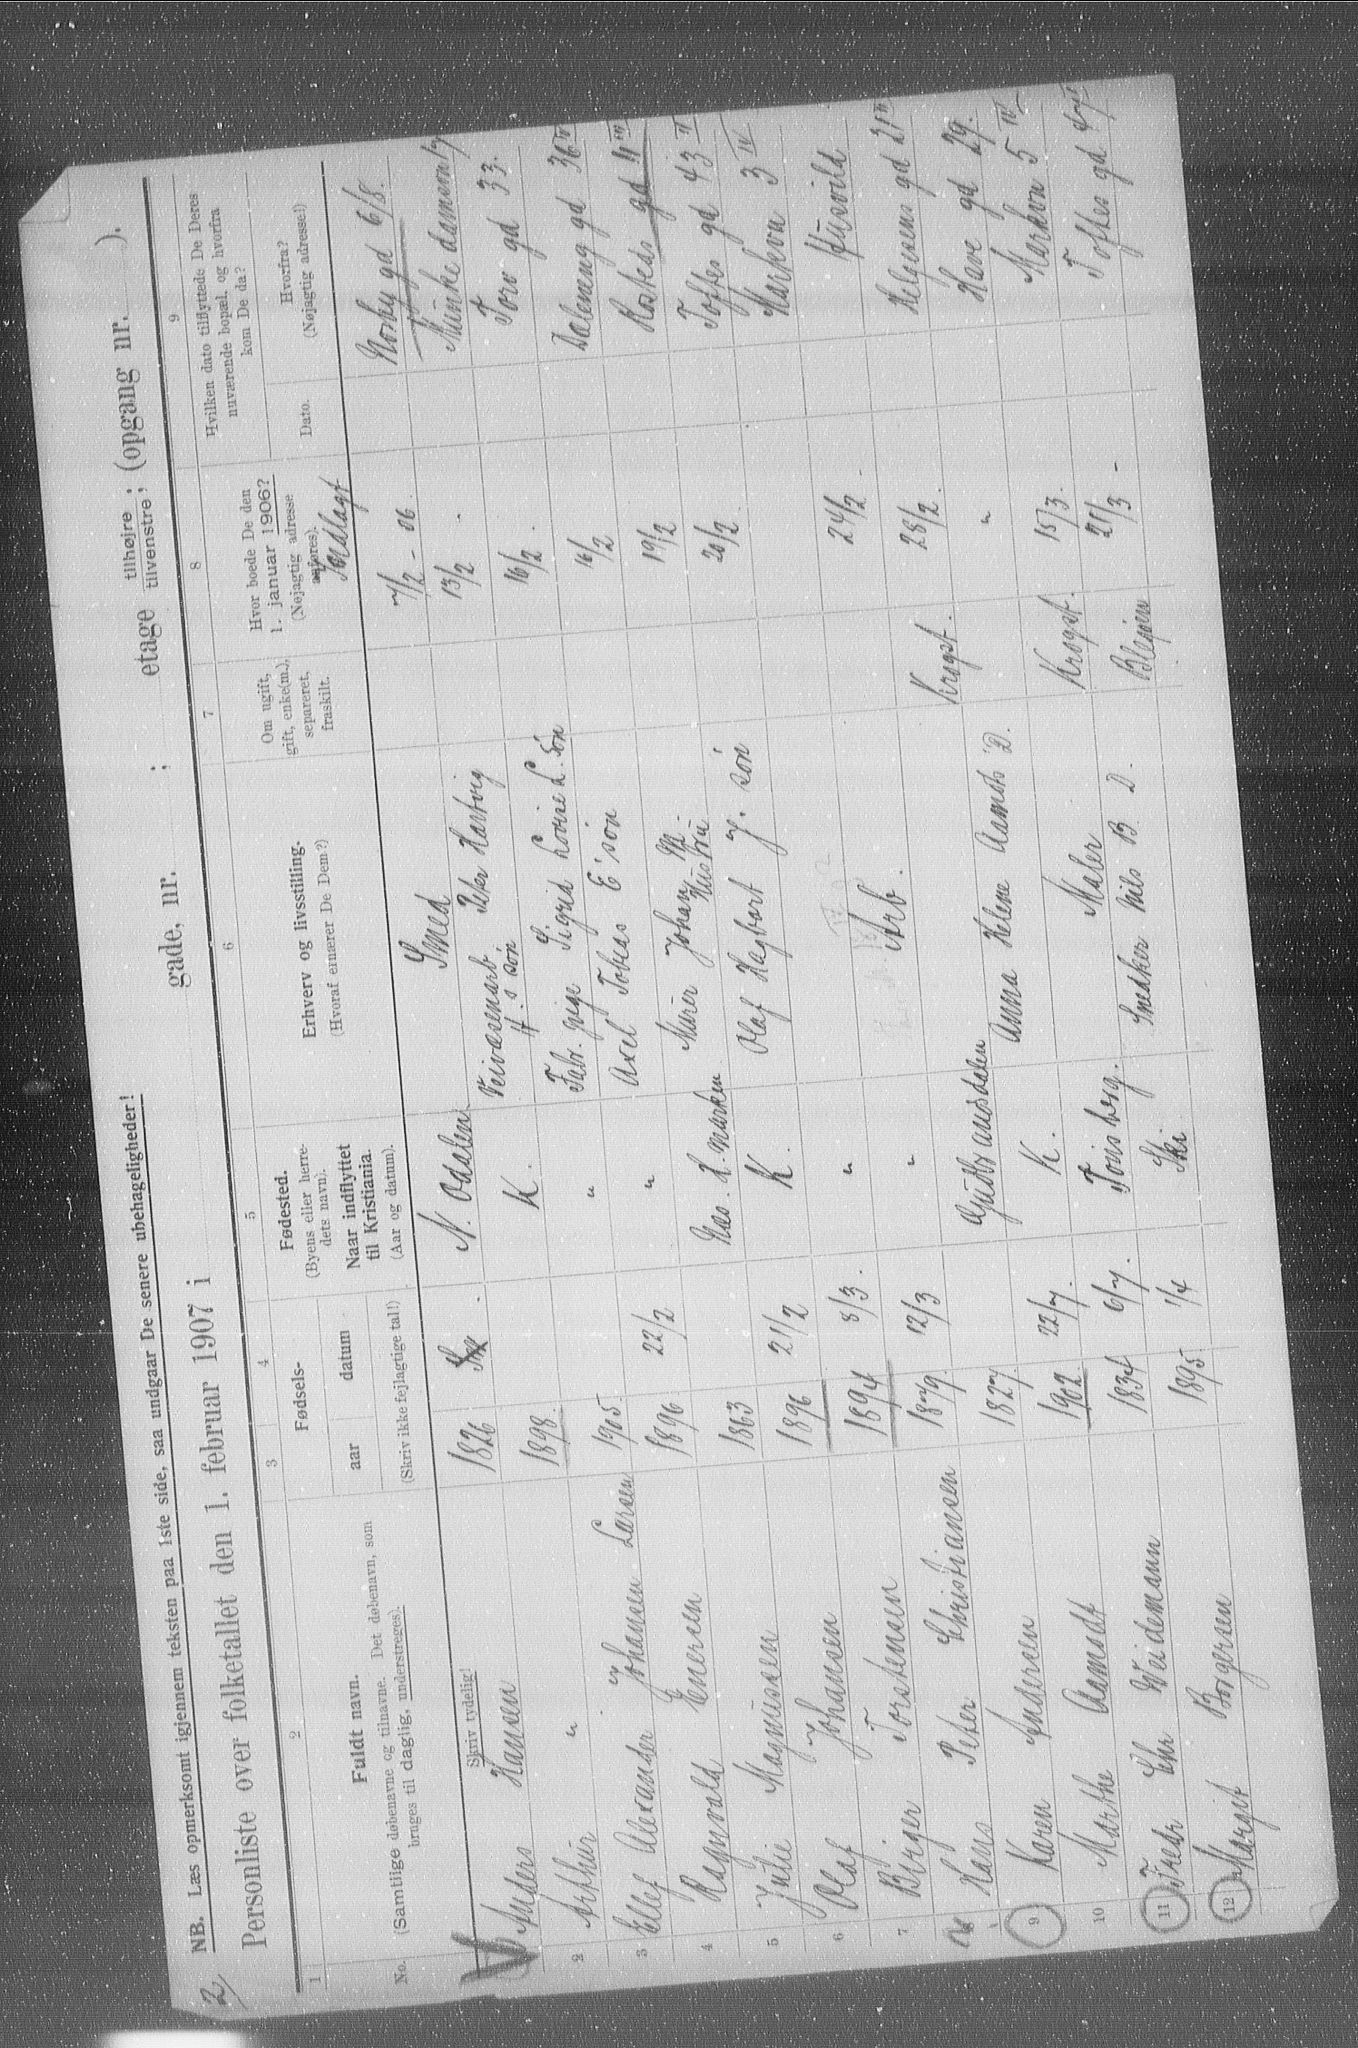 2/
NB. Læs opmerksomt igjennem teksten paa 1ste side, saa undgaar De senere ubehageligheder!
Personliste over folketallet den 1. februar 1907 i gade, nr. ; etage tilhøjre ; tilvenstre ; (opgang nr. ).
1 2 3 4 5 6 7 8 9
No.
Fuldt navn.
(Samtlige døbenavne og tilnavne. Det døbenavn, som
bruges til daglig, understreges).
Fødsels-
aar datum
(Skriv ikke fejlagtige tal!)
Fødested.
(Byens eller herre-
dets navn).
Naar indflyttet
til Kristiania.
(Aar og datum).
Erhverv og livsstilling.
(Hvoraf ernærer De Dem?)
Om ugift,
gift, enke(m.),
separeret,
fraskilt.
Hvor boede De den
1. januar 1906?
(Nøjagtig adresse
anføres).
Indlagt
Hvilken dato tilflyttede De Deres
nuværende bopæl, og hvorfra
kom De da?
Dato.
Hvorfra?
(Nøjagtig adresse!)
Skriv tydelig!
Anders Hansen 1826 N. Odalen Smed 7/2 - 06 Norby gd 6/8.
2 Arthur " 1898. K. Veivæsenarb Peter Hartvig H.s søn 13/2 - Munkedamsv 17
3 Ellef Alexander Johansen Larsen 1905. " Fabr. pige Sigrid Lovise L. søn 16/2. Torv gd 33.
4 Ragnvald Enersen 1896 22/2 " Axel Tobias E' søn 16/2 Dæleneng gd 36 IV
5 Julie Magnussen 1863 Næs. H. marken Murer Johan M. Hustru 19/2 Roskeds gd 11 III
6 Olaf Johansen 1896 21/2 K. Olaf Hagbart J. søn 20/2. Toftes gd 43 II
7 Birger Torstensen 1894 8/3. " Markvn 3 IV
Hans Peter Christiansen 1879. 12/3 " Arb. 24/2. Husvild
9 Karen Andersen 1827 Gudbrandsdalen Krogst. 28/2. Helgesens gd 21 II
10 Marthe Aamodt 1902. 22/7. K. Anna Helene Aamots D. " Have gd 29.
11 Fredr Chr Weidemann 1834 6/7. Tønsberg. Maler Krogst. 15/3. Markvn 5 IV
12 Margit Borgersen 1895 1/4 Ski Snedker Nils B. D. Blegen 21/3 - Toftes gd 47